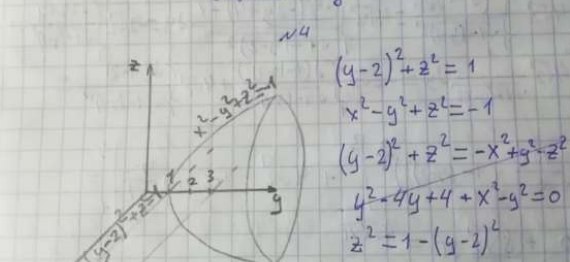 №4
z
x²-y²+z²=-1
1 2 3
y
(y-2)²+z²=1
(y-2)²+z²=1
x²-y²+z²=-1
(y-2)²+z²=-x²+y²-z²
y²-4y+4+x²-y²=0
z²=1-(y-2)²